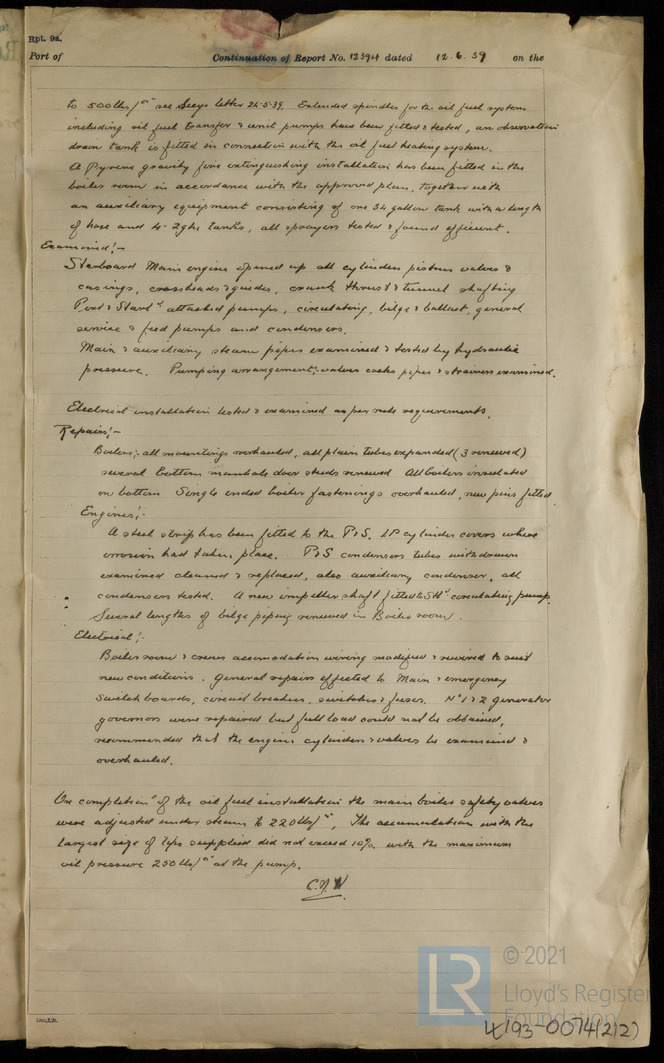 Rpt. 9a.
Port of Continuation of Report No. 12394 dated 12.6.39 on the
to 500 lbs/□" see Secys letter 24.5.39. Extended spindles for the oil fuel system
including oil fuel transfer & unit pumps have been fitted & tested, an observation
drain tank is fitted in connection with the oil fuel heating system.
A Pyrene gravity fire extinguishing installation has been fitted in the
boiler room in accordance with the approved plan, together with
an auxiliary equipment consisting of one 34 gallon tank with a length
of hose and 4-2 gln tanks, all sprayers tested & found efficient.
Examined:-
Starboard Main engine opened up all cylinders, pistons valves &
casings, crossheads & guides, crank thrust & tunnel shafting
Port & Starbd attached pumps, circulating, bilge & ballast, general
service & feed pumps and condensers.
Main & auxiliary steam pipes examined & tested by hydraulic
pressure. Pumping arrangements; valves cocks pipes & strainers examined.
Electrical installation tested & examined as per rule requirements.
Repairs:-
Boilers; all mountings overhauled, all plain tubes expanded (3 renewed)
several bottom manhole door studs renewed All boilers insulated
on bottom Single ended boiler fastenings overhauled, new pins fitted
Engines:-
A steel strip has been fitted to the P&S. LP cylinder covers where
corrosion had taken place. P&S condensers tubes withdrawn
examined cleaned & replaced, also auxiliary condenser, all
condensers tested. A new impeller shaft fitted to Stbd circulating pump.
Several lengths of bilge piping renewed in Boiler room.
Electrical:-
Boiler room & crews accomodation wiring modified & rewired to suit
new conditions. General repairs effected to Main & emergency
switch boards, circuit breakers, switches & fuses. No 1 & 2 generator
governors were repaired but full load could not be obtained,
recommended that the engine cylinders & valves be examined &
overhauled.
On completion of the oil fuel installation the main boiler safety valves
were adjusted under steam to 220 lbs/□", The accumulation with the
largest size of tips supplied did not exceed 10% with the maximum
oil pressure 250 lbs/□" at the pump.
© 2021
LR
Lloyd's Register
Foundation
W193-0074(2/2)